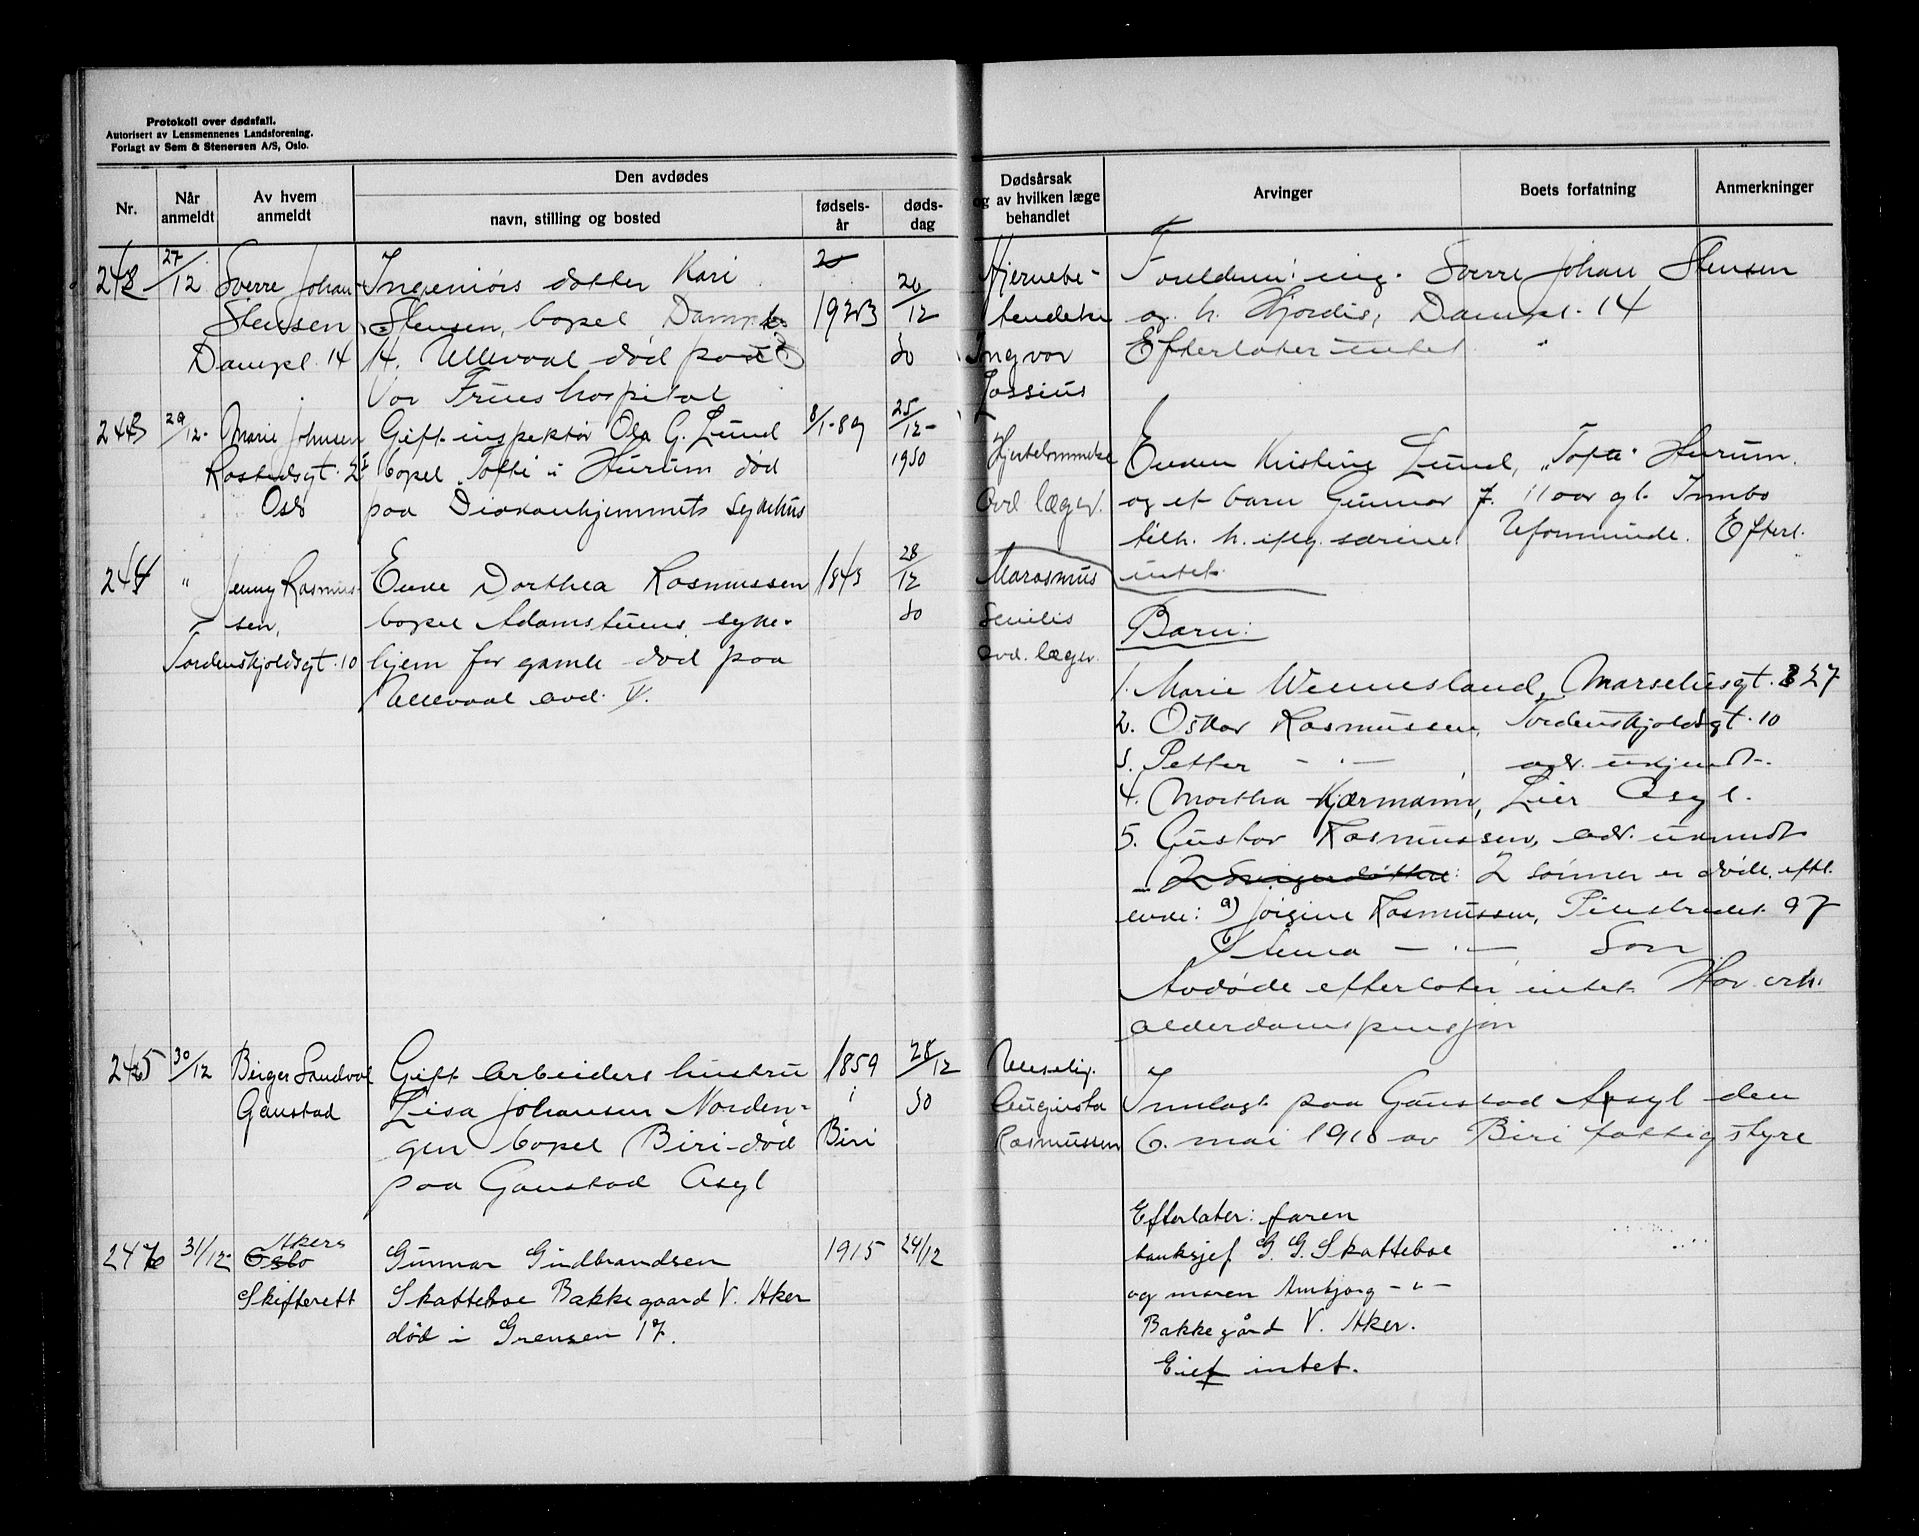 Protokoll over dødsfall.
Autorisert av Lensmennenes Landsforening.
Forlagt av Sem & Stenersen A/S, Oslo.
Nr.
Når anmeldt
Av hvem anmeldt
Den avdødes
navn, stilling og bosted
fødsels-år
døds-dag
Dødsårsak og av hvilken læge behandlet
Arvinger
Boets forfatning
Anmerkninger
242
27/12
Sverre Johan
Stensen
Dampl. 14
Ingeniørs datter Kari
Stensen, bopel
H. Ullevaal død paa
Vor Frues hospital
1923
20/12
30
Hjernebe-
tendelse
Ingvar
Lossius
Foreldrene: ing. Sverre Johan Stensen
og h. Hjordis, Dampl. 14
Efterlater intet
243
29/12-
Marie Johnsen
Rostedsgt. 2 I
Oslo
Gift inspektør Ola G. Lund
bopel Tofte i Hurum død
paa Diakonhjemmets sykehus
8/1-89
25/12-
1930
Hjertelammelse
Avd læger.
Enken Kristine Lund, "Tofte" Hurum.
og et barn Gunnar f. 11 aar gl. Innbo
tilh. h. iflg. særeie. Uformuende. Efterl.
intet.
244
"
Jenny Rasmus-
sen,
Tordenskjoldsgt. 10
Enke Dorthea Rasmussen
bopel Adamstuens syke-
hjem for gamle død paa
Ullevaal avd. IV.
1843
28/12
30
Marasmus
Senilis
avd. læger.
Barn:
1. Marie Wennesland, Marseliesgt. 27
2. Oskar Rasmussen, Tordenskjoldsgt. 10
3. Petter - " - , adr. ukjendt.
4. Martha Kjærmann, Lier Asyl.
5. Gustav Rasmussen, adr. ukjendt
2 Svigerdøttre: 2 sønner er døde, eftl.
enke: a) Jørgine Rasmussen, Pilestredet 97
b) Stina - " - Son
Avdøde efterlater intet. Har erh.
alderdomspensjon
245
30/12
Birger Sandval
Gaustad
Gift arbeiders hustru
Lisa Johansen Norden-
gen bopel Biri død
paa Gaustad Asyl
1859
i
Biri
28/12
30
Augusta
Rasmussen
Innlagt paa Gaustad Asyl den
6. mai 1918 av Biri fattigstyre
246
31/12-
Akers
Oslo
Skifterett
Gunnar Gudbrandsen
Skatteboe Bakkegaard V. Aker
død i Grensen 17.
1915
24/12
Efterlater: faren
banksjef G. G. Skatteboe
og moren Ambjørg - " -
Bakkegård V. Aker.
Eiet intet.